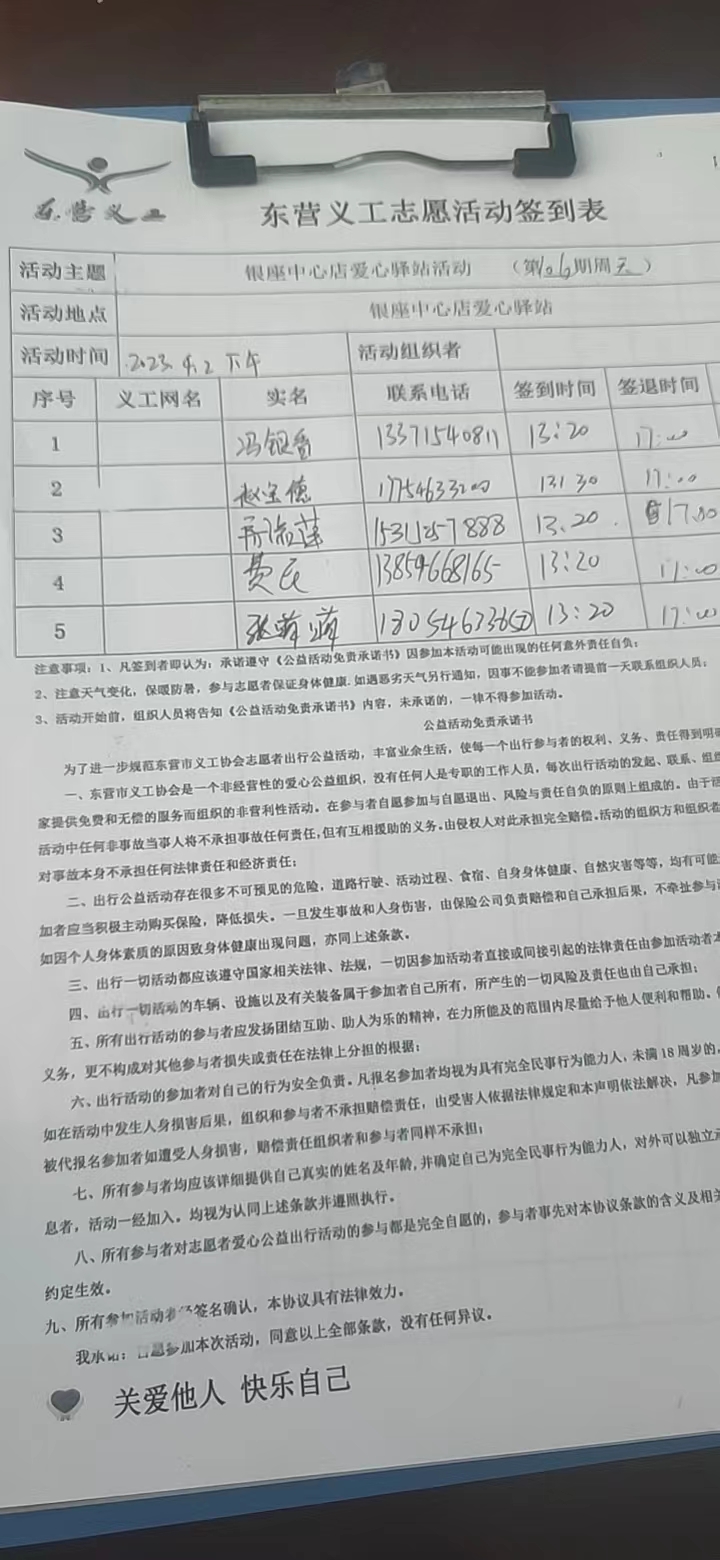 东营义工
东营义工志愿活动签到表
活动主题 银座中心店爱心驿站活动 (第106期周天)
活动地点 银座中心店爱心驿站
活动时间 2023.4.2 下午 活动组织者
序号 义工网名 实名 联系电话 签到时间 签退时间
1 冯银香 13371540811 13:20 17:00
2 赵宝德 17754633200 13:30 17:00
3 15311257888 13.20 17.00
4 费民 13859668165 13:20 17:00
5 张萍萍 13:20 17:00
注意事项：1、凡签到者即认为：承诺遵守《公益活动免责承诺书》因参加本活动可能出现的任何意外责任自负；
2、注意天气变化，保暖防暑，参与志愿者保证身体健康.如遇恶劣天气另行通知，因事不能参加者请提前一天联系组织人员；
3、活动开始前，组织人员将告知《公益活动免责承诺书》内容，未承诺的，一律不得参加活动。
公益活动免责承诺书
为了进一步规范东营市义工协会志愿者出行公益活动，丰富业余生活，使每一个出行参与者的权利、义务、责任得到明确
一、东营市义工协会是一个非经营性的爱心公益组织，没有任何人是专职的工作人员，每次出行活动的发起、联系、组织
家提供免费和无偿的服务而组织的非营利性活动。在参与者自愿参加与自愿退出、风险与责任自负的原则上组成的。由于活
活动中任何非事故当事人将不承担事故任何责任,但有互相援助的义务。由侵权人对此承担完全赔偿。活动的组织方和组织者
对事故本身不承担任何法律责任和经济责任；
二、出行公益活动存在很多不可预见的危险，道路行驶、活动过程、食宿、自身身体健康、自然灾害等等，均有可能
加者应当积极主动购买保险，降低损失。一旦发生事故和人身伤害，由保险公司负责赔偿和自己承担后果，不牵扯参与
如因个人身体素质的原因致身体健康出现问题，亦同上述条款。
三、出行一切活动都应该遵守国家相关法律、法规，一切因参加活动者直接或间接引起的法律责任由参加活动者本
四、出行一切活动的车辆、设施以及有关装备属于参加者自己所有，所产生的一切风险及责任也由自己承担；
五、所有出行活动的参与者应发扬团结互助、助人为乐的精神，在力所能及的范围内尽量给予他人便利和帮助。
义务，更不构成对其他参与者损失或责任在法律上分担的根据；
六、出行活动的参加者对自己的行为安全负责。凡报名参加者均视为具有完全民事行为能力人，未满18周岁的，
如在活动中发生人身损害后果，组织和参与者不承担赔偿责任，由受害人依据法律规定和本声明依法解决，凡参加
被代报名参加者如遭受人身损害，赔偿责任组织者和参与者同样不承担；
七、所有参与者均应该详细提供自己真实的姓名及年龄,并确定自己为完全民事行为能力人，对外可以独立
息者，活动一经加入。均视为认同上述条款并遵照执行。
八、所有参与者对志愿者爱心公益出行活动的参与都是完全自愿的，参与者事先对本协议条款的含义及相关
约定生效。
九、所有参加活动者经签名确认，本协议具有法律效力。
我承诺：自愿参加本次活动，同意以上全部条款，没有任何异议。
关爱他人 快乐自己